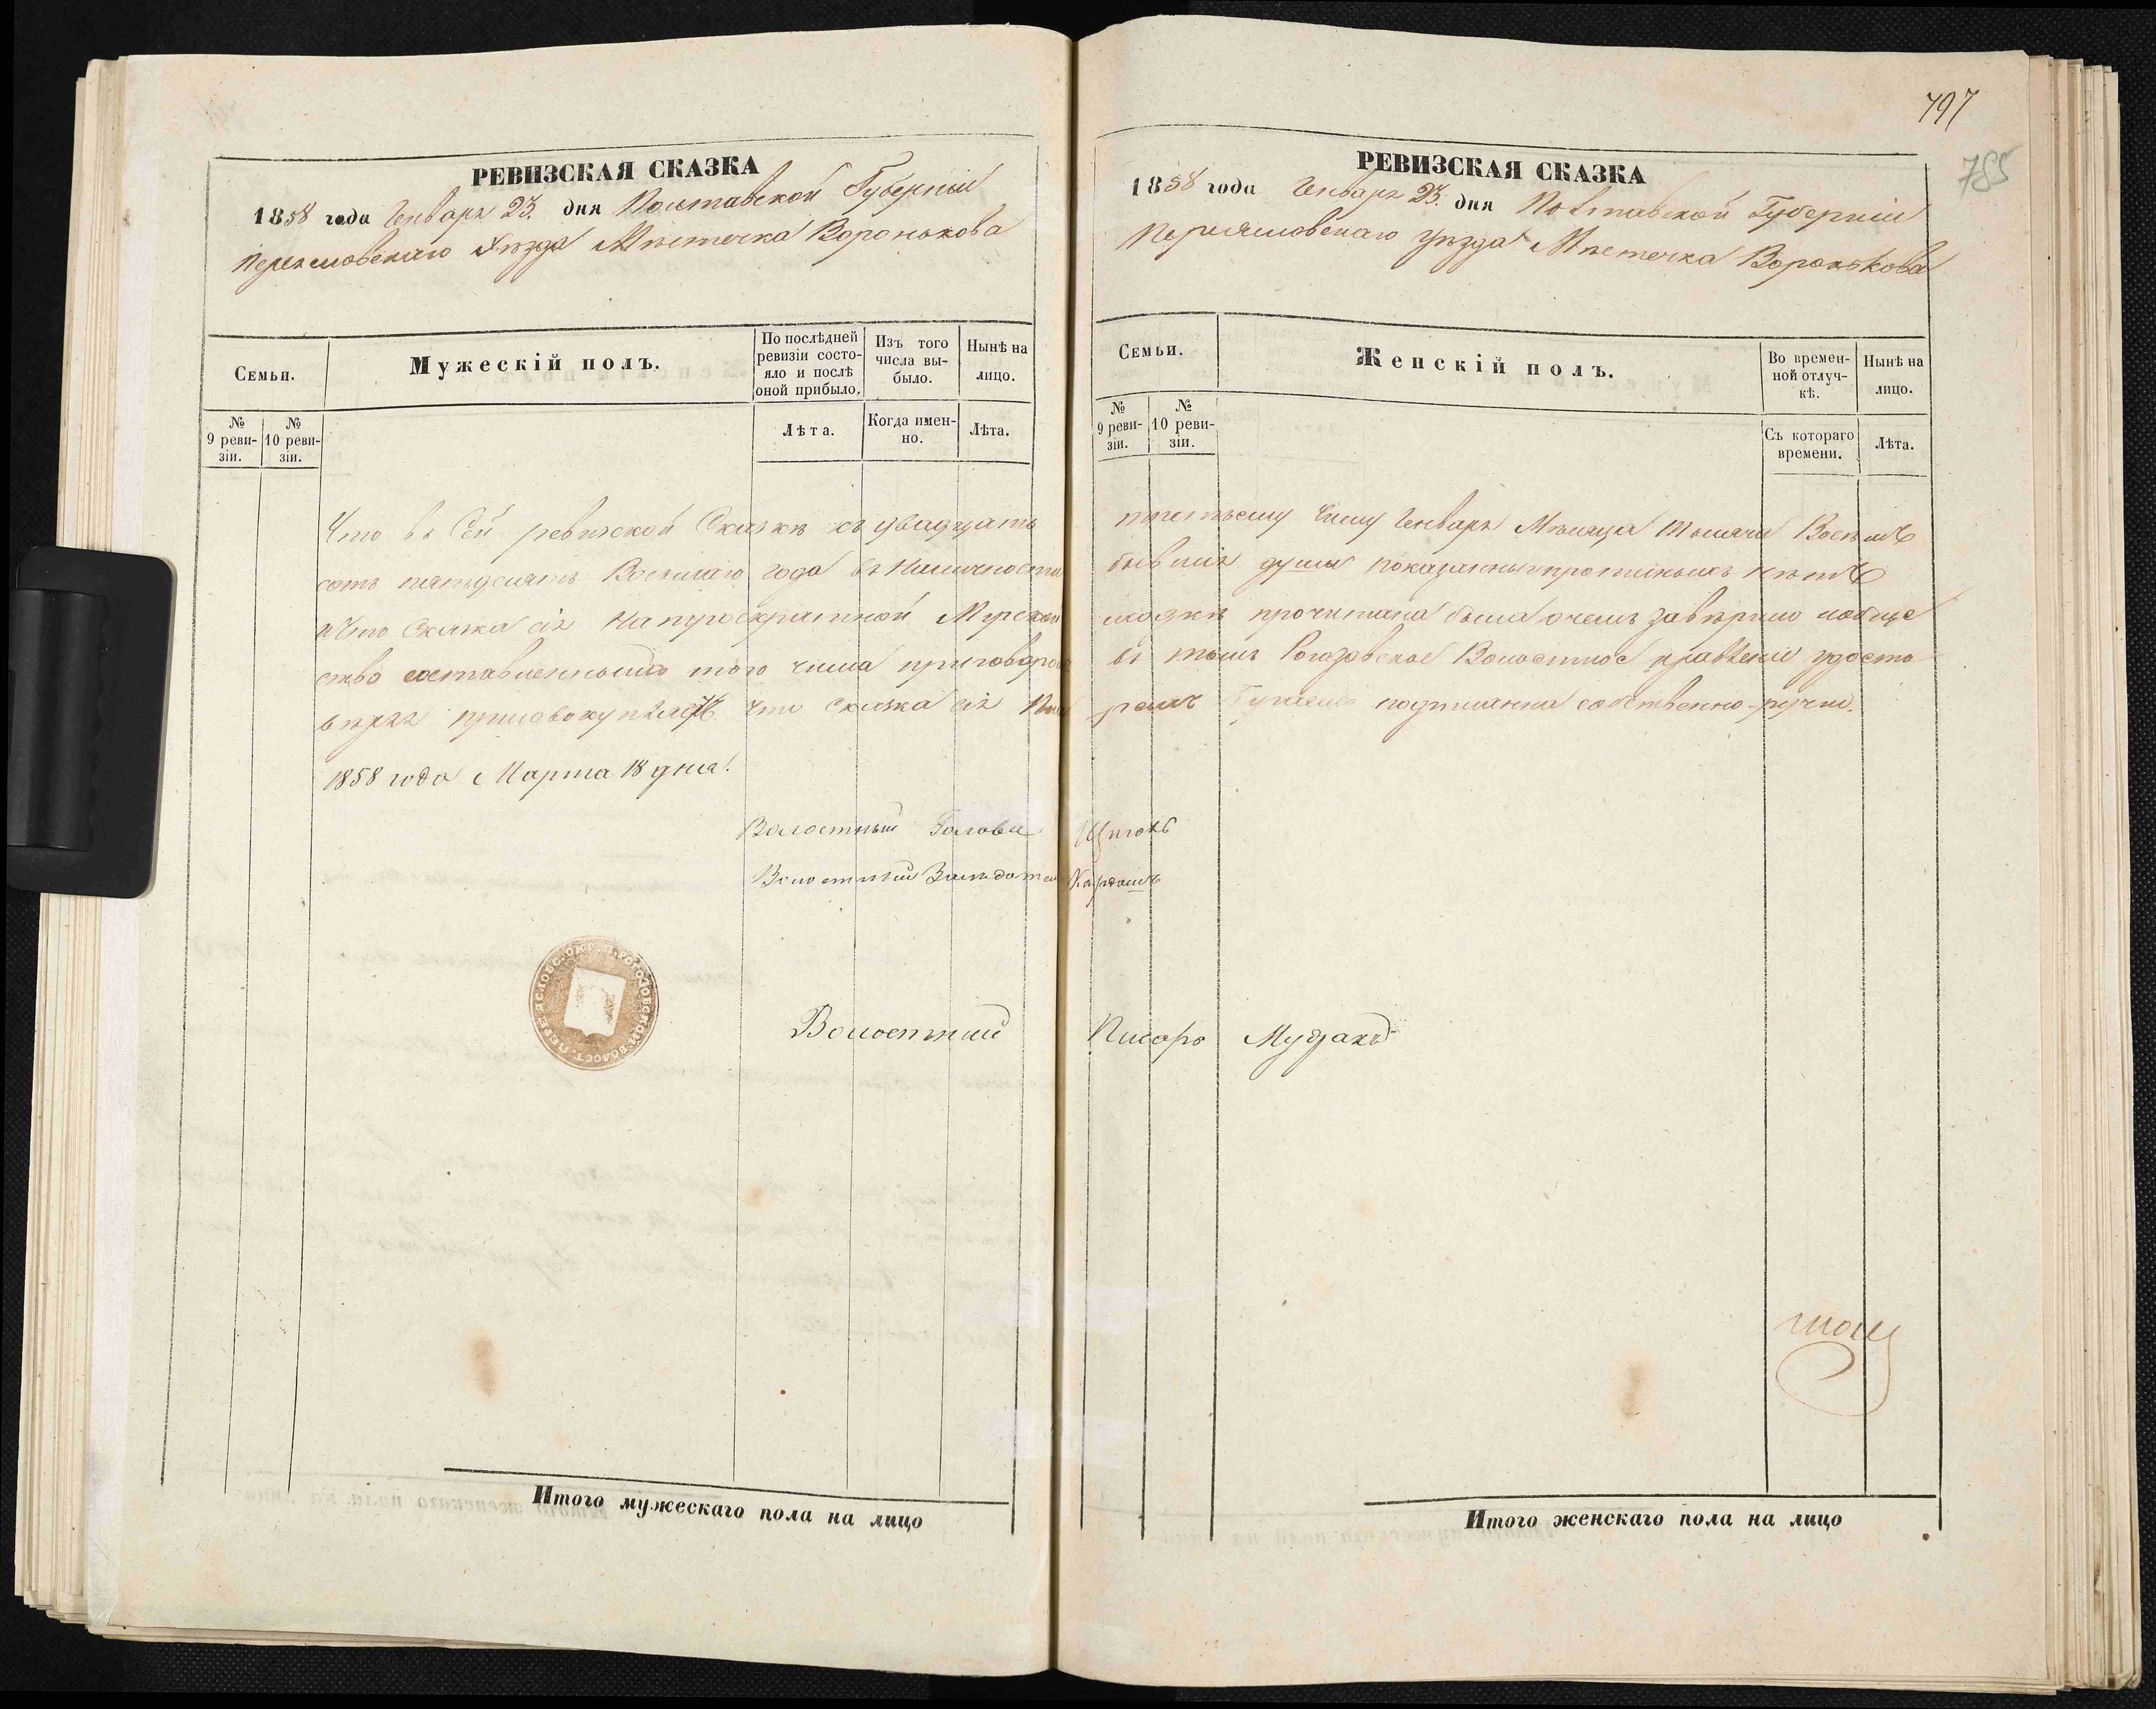 797
785
РЕВИЗСКАЯ СКАЗКА
1858 года Генваря 23. дня Полтавской Губерніи
Переяславскаго Уѣзда Мѣстечка Воронькова
Семьи.
Мужескій полъ.
По послѣдней ревизіи состояло и послѣ оной прибыло.
Изъ того числа выбыло.
Нынѣ на лицо.
№ 9 ревизіи.
№ 10 ревизіи.
Лѣта.
Когда именно.
Лѣта.
Что въ Сей ревизской Сказкѣ къ двадцать
сотъ пятьдесятъ Восьмаго года въ Наличности
что Сказка сія на Мирском
ство составленнымъ того числа приговоро
вѣряя что Сказка сія
1858 года Марта 18 дня.
Волостный Голова
Волостный
ПЕРЕЯСЛОВС. ОКР. ВОЛОСТ.
Волостный
Итого мужескаго пола на лицо
РЕВИЗСКАЯ СКАЗКА
1858 года Генваря 23. дня Полтавской Губерніи
Переяславскаго Уѣзда Мѣстечка Воронькова
Семьи.
Женскій полъ.
Во временной отлучкѣ.
Нынѣ на лицо.
№ 9 ревизіи.
№ 10 ревизіи.
Съ котораго времени.
Лѣта.
третьему числу Генваря Мѣсяца Тысяча Восемь
бывшія души показаны нѣтъ
прочитана была о чемъ завѣрило обще
въ томъ Рогозовское Волостное правленіе удосто
подписанна собственно-ручно.
Кардашъ
Писарь
Итого женскаго пола на лицо